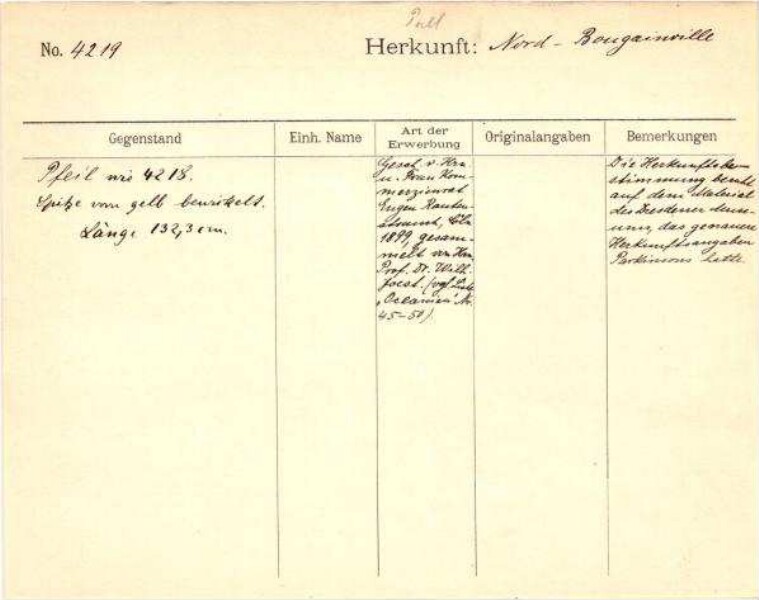 No. 4219
Herkunft: Nord - Bougainville
Gegenstand
Einh. Name
Art der
Erwerbung
Originalangaben
Bemerkungen
Pfeil wie 4218.
Spitze von gelb bewickelt.
Länge 132,3 cm.
Gesch. v. Hrn
u. Frau Kom-
merzienrat
Eugen Rauten-
strauch, Cöln
1899, gesam-
melt von Hrn.
Prof. Dr. Wilh.
Joest. (vgl. Liste
„Oceanien" Nr.
45-50).
Die Herkunftsbe-
stimmung beruht
auf dem Material
des Dresdener Muse-
ums, das genauere
Herkunftsangaben
Parkinsons hatte